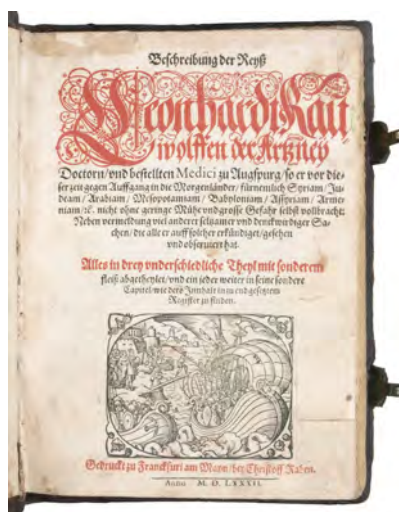 Beschreibung der Reyß
Leonhardi Rau
wolffen der Artzney
Doctorn/ vnd bestellten Medici zu Augspurg/ so er vor die-
ser zeit gegen Auffgang in die Morgenländer/ fürnemlich Syriam/ Ju-
deam/ Arabiam/ Mesopotamiam/ Babyloniam/ Assyriam/ Arme-
niam/ ꝛc. nicht ohne geringe Mühe vnd grosse Gefahr selbst vollbracht:
Neben vermeldung viel anderer seltzamer vnd denckwirdiger Sa-
chen/ die alle er auff solcher erkündiget/ gesehen
vnd obseruiert hat.
Alles in drey vnderschiedliche Theyl mit sonderem
fleiß abgetheylet/ vnd ein jeder weiter in seine sondere
Capitel/ wie dero Innhalt in zu end gesetztem
Register zu finden.
Gedruckt zu Franckfurt am Mayn/ bey Christoff Raben.
Anno M. D. LXXXII.